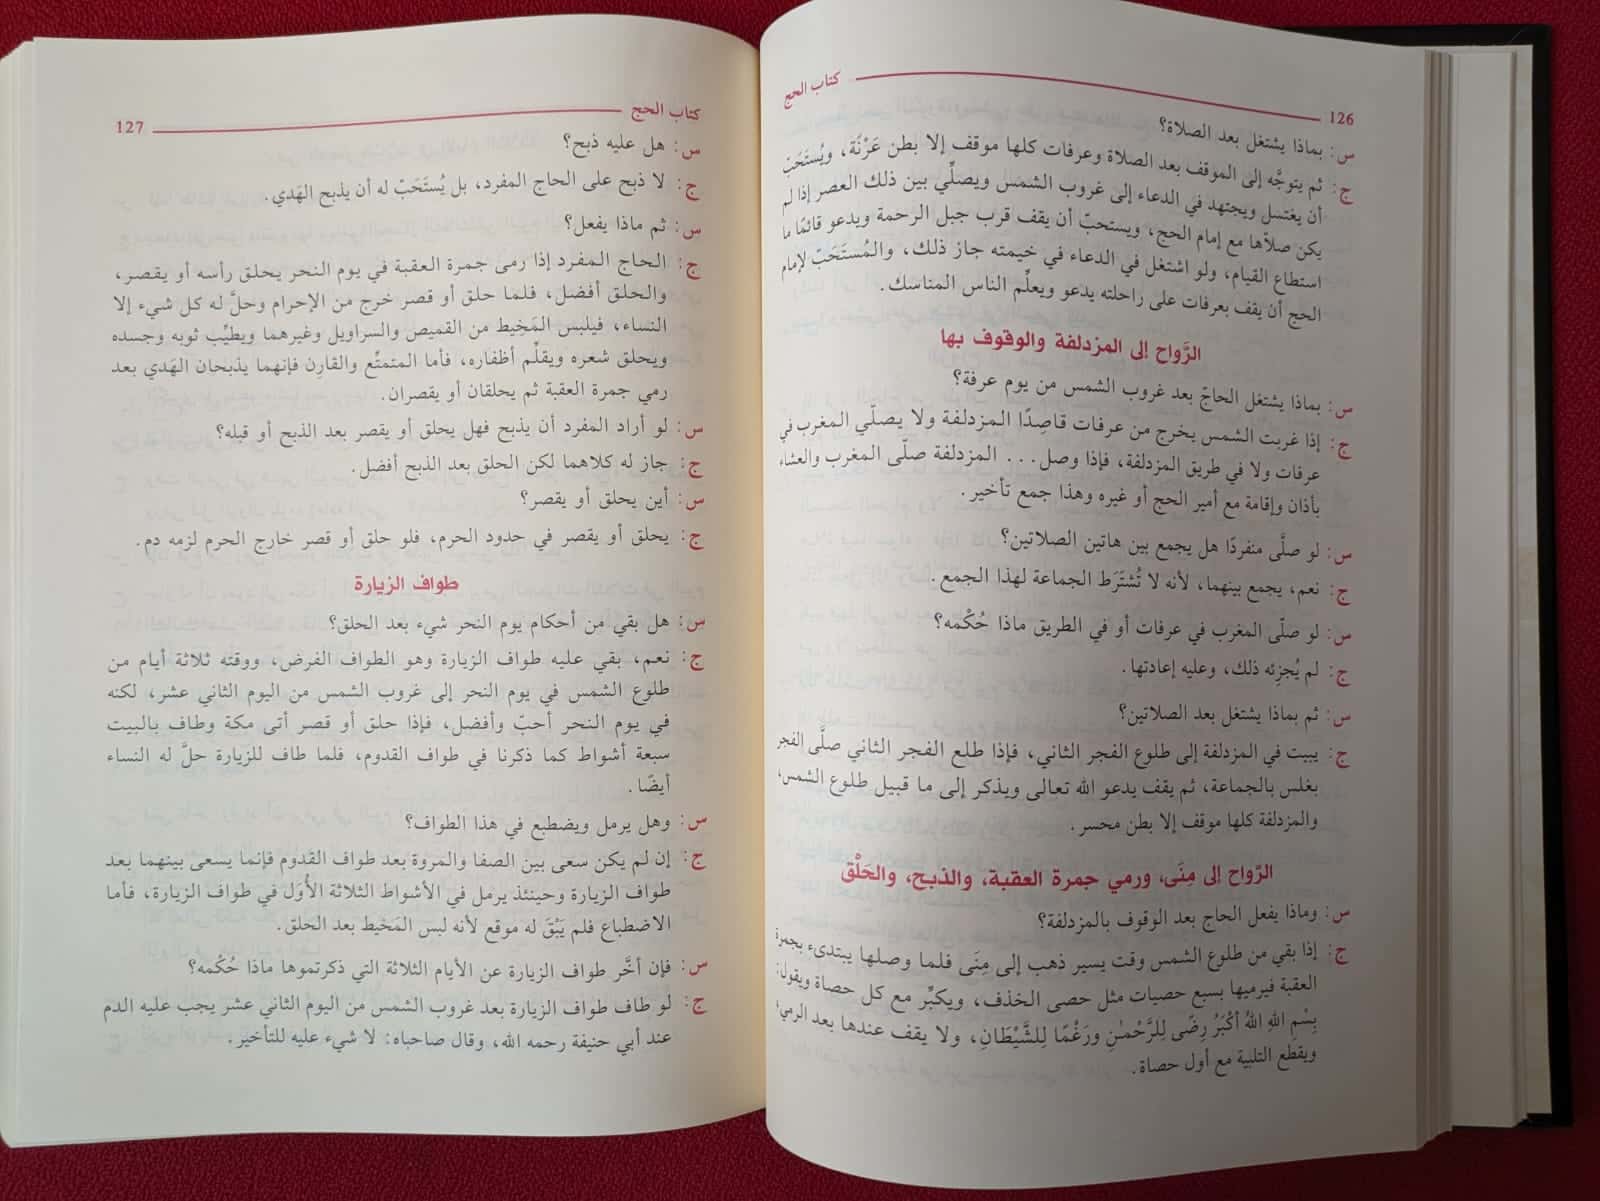 126 كتاب الحج
س: بماذا يشتغل بعد الصلاة؟
ج: ثم يتوجَّه إلى الموقف بعد الصلاة وعرفات كلها موقف إلا بطن عَرْنَة، ويُستَحَبّ
أن يغتسل ويجتهد في الدعاء إلى غروب الشمس ويصلِّي بين ذلك العصر إذا لم
يكن صلاّها مع إمام الحج، ويستحبّ أن يقف قرب جبل الرحمة ويدعو قائمًا ما
استطاع القيام، ولو اشتغل في الدعاء في خيمته جاز ذلك، والمُستَحَبّ لإمام
الحج أن يقف بعرفات على راحلته يدعو ويعلِّم الناس المناسك.
الرَّواح إلى المزدلفة والوقوف بها
س: بماذا يشتغل الحاجّ بعد غروب الشمس من يوم عرفة؟
ج: إذا غربت الشمس يخرج من عرفات قاصِدًا المزدلفة ولا يصلّي المغرب في
عرفات ولا في طريق المزدلفة، فإذا وصل... المزدلفة صلّى المغرب والعشاء
بأذان وإقامة مع أمير الحج أو غيره وهذا جمع تأخير.
س: لو صلَّى منفردًا هل يجمع بين هاتين الصلاتين؟
ج: نعم، يجمع بينهما، لأنه لا تُشتَرَط الجماعة لهذا الجمع.
س: لو صلّى المغرب في عرفات أو في الطريق ماذا حُكْمه؟
ج: لم يُجزِئه ذلك، وعليه إعادتها.
س: ثم بماذا يشتغل بعد الصلاتين؟
ج: يبيت في المزدلفة إلى طلوع الفجر الثاني، فإذا طلع الفجر الثاني صلَّى الفجر
بغلس بالجماعة، ثم يقف يدعو الله تعالى ويذكر إلى ما قبيل طلوع الشمس،
والمزدلفة كلها موقف إلا بطن محسر.
الرَّواح إلى مِنَى، ورمي جمرة العقبة، والذبح، والحَلْق
س: وماذا يفعل الحاج بعد الوقوف بالمزدلفة؟
ج: إذا بقي من طلوع الشمس وقت يسير ذهب إلى مِنَى فلما وصلها يبتدىء بجمرة
العقبة فيرميها بسبع حصيات مثل حصى الخذف، ويكبِّر مع كل حصاة ويقول:
بِسْمِ اللهِ اللهُ أكْبَرُ رِضًى لِلرَّحْمٰنِ ورَغْمًا لِلشَّيْطَانِ، ولا يقف عندها بعد الرمي،
ويقطع التلبية مع أول حصاة.
كتاب الحج 127
س: هل عليه ذبح؟
ج: لا ذبح على الحاج المفرد، بل يُستَحَبّ له أن يذبح الهَدي.
س: ثم ماذا يفعل؟
ج: الحاج المفرد إذا رمى جمرة العقبة في يوم النحر يحلق رأسه أو يقصر،
والحلق أفضل، فلما حلق أو قصر خرج من الإحرام وحلَّ له كل شيء إلا
النساء، فيلبس المَخِيط من القميص والسراويل وغيرهما ويطيِّب ثوبه وجسده
ويحلق شعره ويقلِّم أظفاره، فأما المتمتِّع والقارِن فإنهما يذبحان الهَدي بعد
رمي جمرة العقبة ثم يحلقان أو يقصران.
س: لو أراد المفرد أن يذبح فهل يحلق أو يقصر بعد الذبح أو قبله؟
ج: جاز له كلاهما لكن الحلق بعد الذبح أفضل.
س: أين يحلق أو يقصر؟
ج: يحلق أو يقصر في حدود الحرم، فلو حلق أو قصر خارج الحرم لزمه دم.
طواف الزيارة
س: هل بقي من أحكام يوم النحر شيء بعد الحلق؟
ج: نعم، بقي عليه طواف الزيارة وهو الطواف الفرض، ووقته ثلاثة أيام من
طلوع الشمس في يوم النحر إلى غروب الشمس من اليوم الثاني عشر، لكنه
في يوم النحر أحبّ وأفضل، فإذا حلق أو قصر أتى مكة وطاف بالبيت
سبعة أشواط كما ذكرنا في طواف القدوم، فلما طاف للزيارة حلَّ له النساء
أيضًا.
س: وهل يرمل ويضطبع في هذا الطواف؟
ج: إن لم يكن سعى بين الصفا والمروة بعد طواف القدوم فإنما يسعى بينهما بعد
طواف الزيارة وحينئذ يرمل في الأشواط الثلاثة الأُوَل في طواف الزيارة، فأما
الاضطباع فلم يَبْقَ له موقع لأنه لبس المَخيط بعد الحلق.
س: فإن أخَّر طواف الزيارة عن الأيام الثلاثة التي ذكرتموها ماذا حُكْمه؟
ج: لو طاف طواف الزيارة بعد غروب الشمس من اليوم الثاني عشر يجب عليه الدم
عند أبي حنيفة رحمه الله، وقال صاحباه: لا شيء عليه للتأخير.